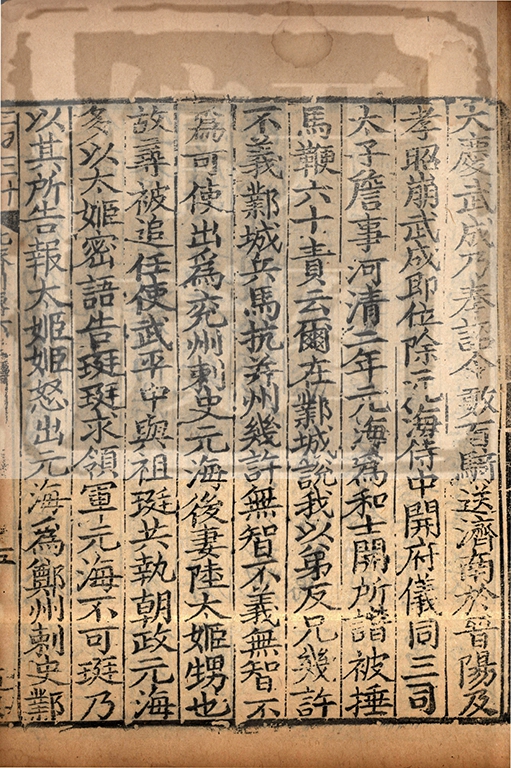 大慶武成乃奉詔令數百騎送濟南於晉陽及
孝昭崩武成即位除元海侍中開府儀同三司
太子詹事河清二年元海爲和士開所譖被捶
馬鞭六十責云爾在鄴城說我以弟反兄幾許
不義鄴城兵馬抗并州幾許無智不義無智不
爲可使出爲兖州刺史元海後妻陸太姬甥也
故尋被追任使武平中與祖珽共執朝政元海
多以太姬密語告珽珽求領軍元海不可珽乃
以其所告報太姬姬怒出元海爲鄭州刺史鄴